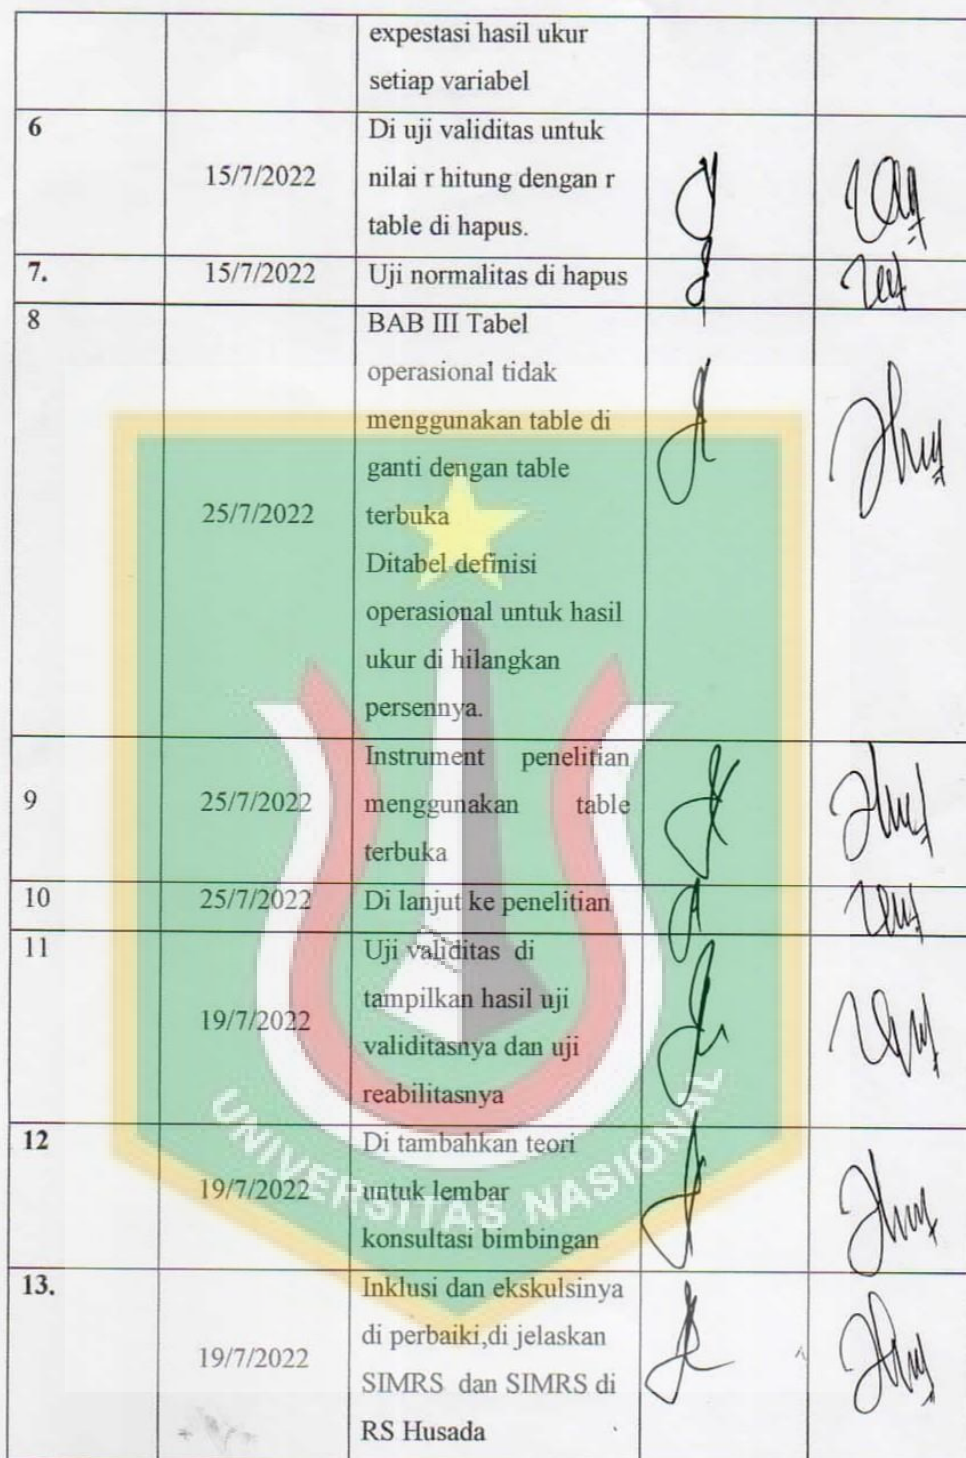 expestasi hasil ukur
setiap variabel
6
15/7/2022
Di uji validitas untuk
nilai r hitung dengan r
table di hapus.
7.
15/7/2022
Uji normalitas di hapus
8
25/7/2022
BAB III Tabel
operasional tidak
menggunakan table di
ganti dengan table
terbuka
Ditabel definisi
operasional untuk hasil
ukur di hilangkan
persennya.
9
25/7/2022
Instrument penelitian
menggunakan table
terbuka
10
25/7/2022
Di lanjut ke penelitian
11
19/7/2022
Uji validitas di
tampilkan hasil uji
validitasnya dan uji
reabilitasnya
12
19/7/2022
Di tambahkan teori
untuk lembar
konsultasi bimbingan
13.
19/7/2022
Inklusi dan ekskulsinya
di perbaiki,di jelaskan
SIMRS dan SIMRS di
RS Husada
UNIVERSITAS NASIONAL